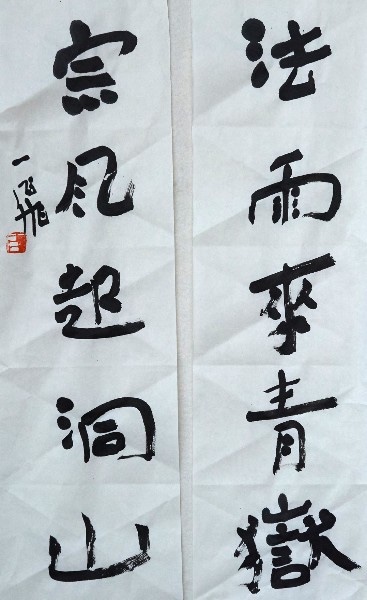 法雨來青嶽
宗風起洞山